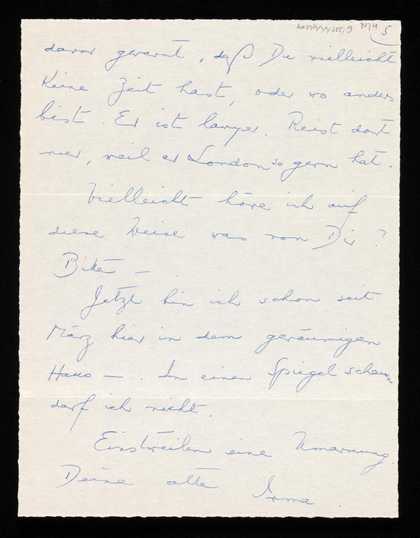 davor gewarnt, daß Du vielleicht
keine Zeit hast, oder wo anders
bist. Er ist lawyer. Reist dort
nur, weil er London so gern hat.
Vielleicht höre ich auf
diese Weise was von Dir?
Bitte —
Jetzt bin ich schon seit
März hier in dem geräumigen
Haus —. In einen Spiegel schauen
darf ich nicht.
Einstweilen eine Umarmung
Deine alte Irma